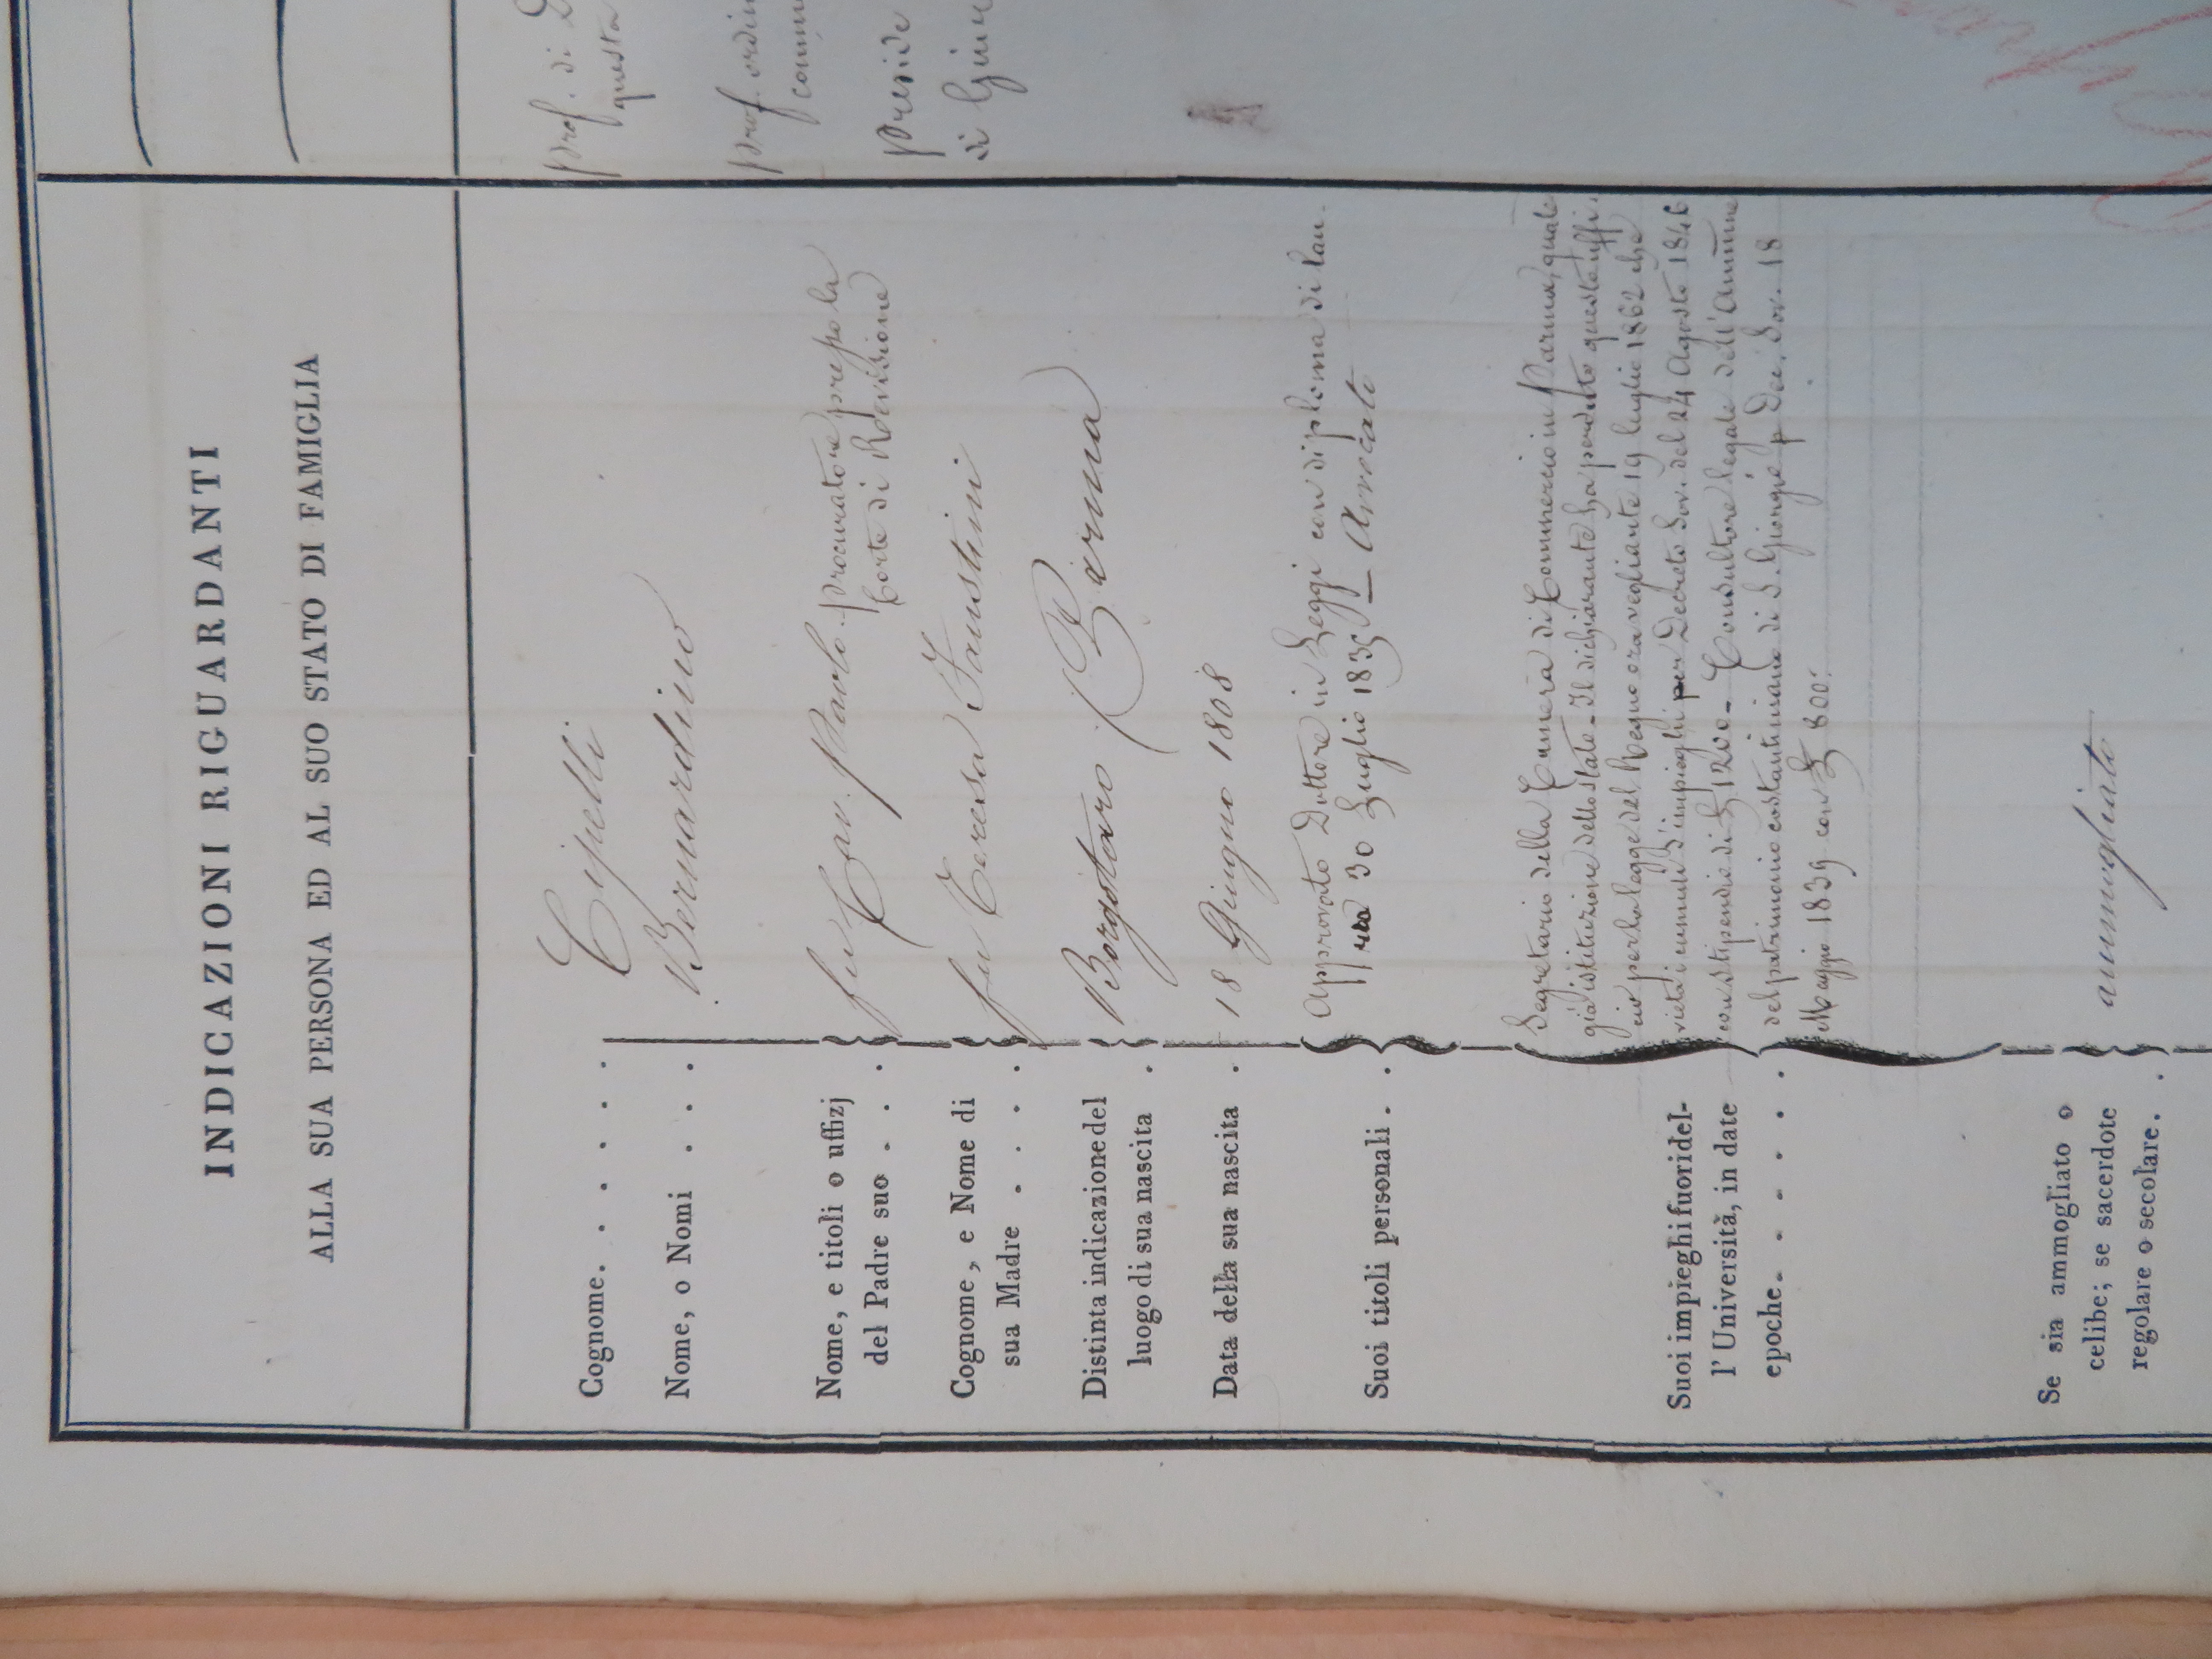 INDICAZIONI RIGUARDANTI
ALLA SUA PERSONA ED AL SUO STATO DI FAMIGLIA
Cognome. . . . . . Cipelli
Nome, o Nomi . . . Bernardino
Nome, e titoli o uffizj
del Padre suo . . .
fu Cav. Paolo. procuratore presso la
Corte di Revisione
Cognome, e Nome di
sua Madre . . . .
fu Teresa Faustini
Distinta indicazione del
luogo di sua nascita .
Borgotaro (Parma)
Data della sua nascita . 18 Giugno 1808
Suoi titoli personali. .
Approvato Dottore in Leggi con diploma di lau-
rea 30 Luglio 1835 — Avvocato
Suoi impieghi fuori del-
l'Università, in date
epoche. . . . . .
Segretario della Camera di Commercio in Parma, quale
già istituzione dello stato - Il dichiarante ha perduto questo uffi-
cio per la legge del Regno ora vegliante 19 luglio 1862 che
vieta i cumuli d'impieghi per Decreto Sov. del 24 Agosto 1846
con stipendio di £ 1200 - Consultore legale dell' Ammne
del patrimonio costantiniano di S. Giorgio p Dec. Sov. 18
Maggio 1839 con £ 800.
Se sia ammogliato o
celibe; se sacerdote
regolare o secolare. .
ammogliato
prof. di
questa
prof. ordin
comm
preside
di Giu